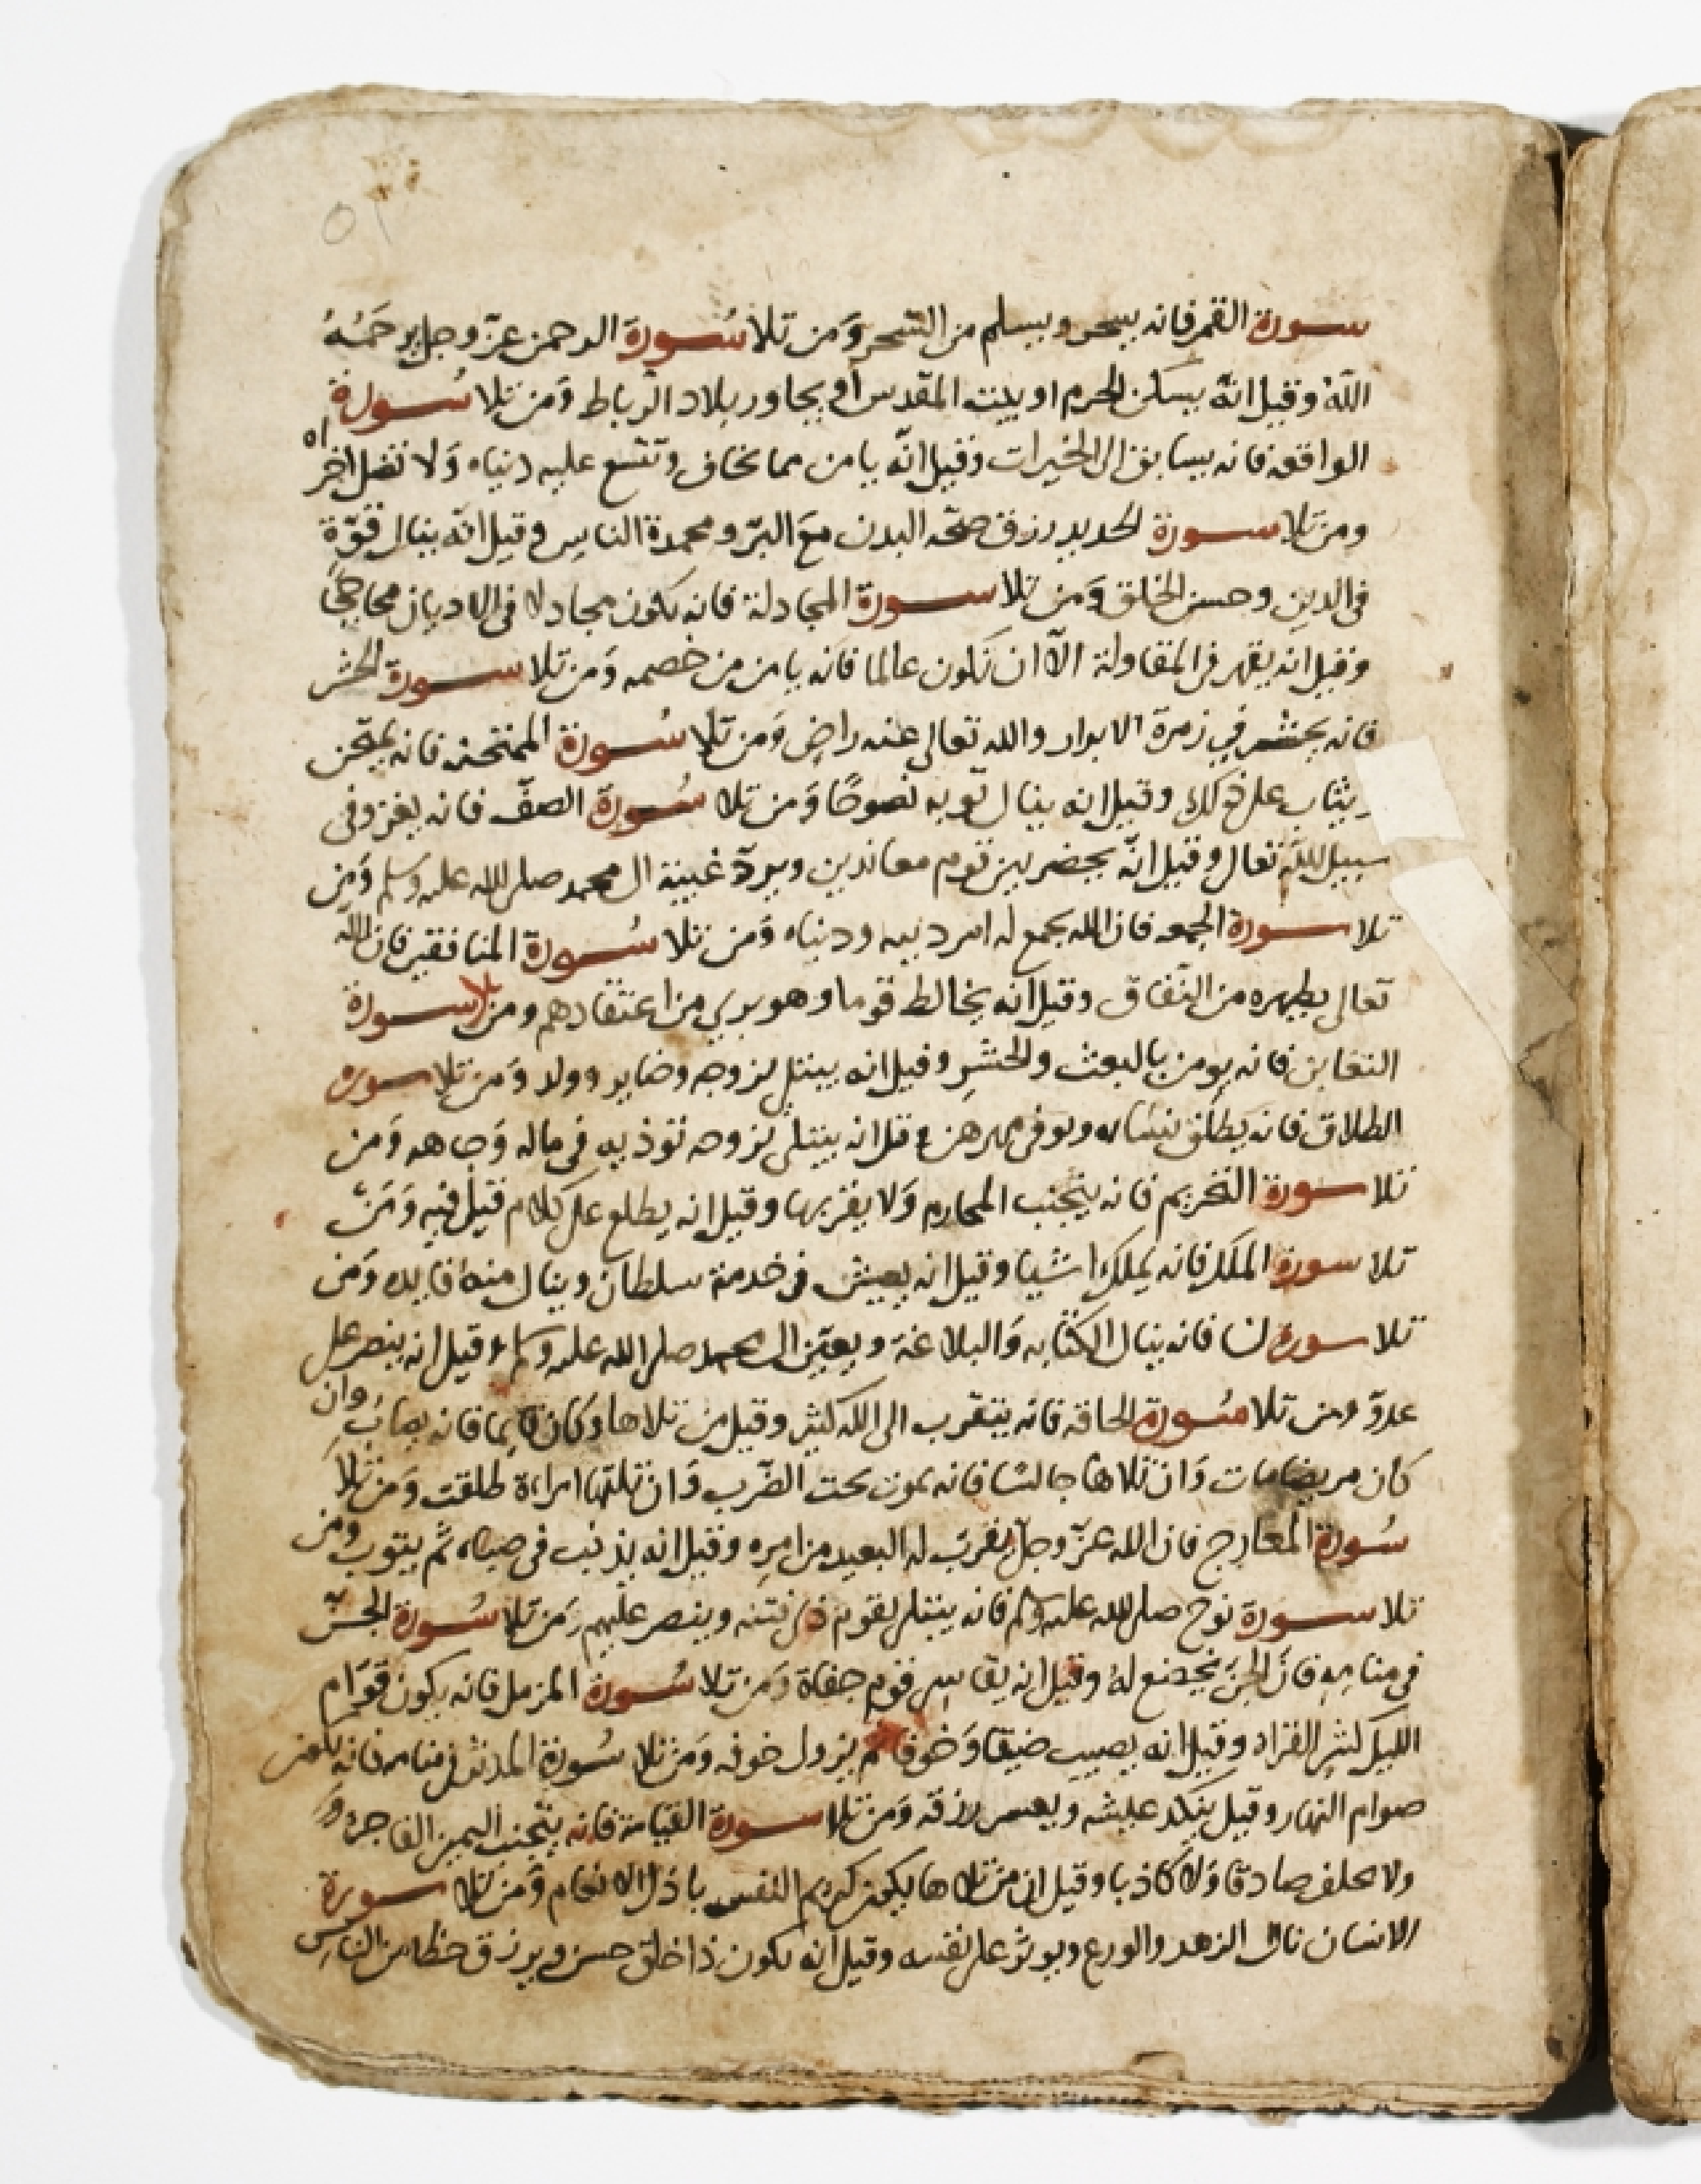 سورة القمر فانه يسحر ويسلم من السحر وَمن تلا سُورة الرحمن عزّ وجل يرحَمُهُ
اللّٰهُ وقيل انّه يسكن الحرم او بيت المقدس أو يجاور بلاد الرباط وَمن تلا سُورة
الواقعة فانه يسابق الى الخيرات وقيل انّه يامن مما يخاف وتتسع عليه دنياه وَلا تضل اخراه
ومن تلا سورة الحديد رزق صحّه البدن مَعَ البرّ ومحمدة الناس وقيل انّه ينال قوّة
فى الدين وحسن الخلق وَمن تلا سورة المجادلة فانه يكون مجادلا فى الاديان محاججًا
وقيل انه يقهر فى المقاولة الّا ان تكون عالما فانه يامن من خصمه وَمن تلا سورة الحشر
فانه يحشر في زمرة الابرار والله تعالى عنه راضٍ وَمن تلا سُورة الممتحنه فانه يمتحن
يثاب على ذلك وقيل انه ينال توبه نصوحًا وَمن تلا سُورة الصفّ فانه يغزو فى
سبيل اللّه تعالى وقيل انّه يحضر بين قوم معاندين ويردّ غيبة ال محمد صلى الله عليه وسلم وَمن
تلا سورة الجمعه فان الله يجمع له امر دينه ودنياه وَمن تلا سُورة المنافقين فان اللّه
تعالى يطهره من النّفاق وقيل انّه يخالط قوما وهو بري من اعتقادهم ومن تلا سورة
التغابن فانه يومن بالبعث والحشرِ وقيل انه يبتلى بزوجه وضاير وولد وَمن تلا سوره
الطلاق فانه يطلق نساه ويوفى مهرهن وقيل انه يبتلى بزوجه توذيه فى ماله وَجاهه وَمن
تلا سورة التحريم فانه يتجنب المحارم وَلا يقربها وقيل انه يطلع على كلام قيل فيه وَمَن
تلا سورة الملك فانه يملك اشيا وقيل انه يعيش فى خدمة سلطان وينال منهُ فايده وَمن
تلا سوره ن فانه ينال الكتابه وَالبلاغة ويعين ال محمد صلى الله عليه وسلم وقيل انه ينصر على
عدوّ ومن تلا سُورة الحاقه فانه يتقرب الى الله كثير وقيل من تلاها وكان قايما فانه يصابُ وان
كان مريضا مات وَان تلاها جالسا فانه يموت تحت الضّرب وَان تلتها امراءة طلقت وَمن تلا
سُورة المعارج فان الله عزّ وجلّ يقربّ له البعيد من امرِه وقيل انه يذنب فى صباه ثم يتوب ومن
تلا سورة نوح صلى الله عليه وسلم فانه يبتلى بقوم ذى فتنه وينصر عليهم وَمن تلا سُورة الجنّ
فى منامهِ فانّ الجنّ يخضع لهُ وقيل انه يقاسى قوم جفاة وَمن تلا سُورة المزمل فانه يكون قوّام
الليل كثير القراة وقيل انه يصيب ضيقا وَخوفا ثم يزول خوفه وَمن تلا سُورة المدثر فى منامه فانه يكون
صوام النهار وقيل ينكد عليشه ويعسر رزقه وَمن تلا سورة القيامة فانه يتجنب اليمين الفاجرة وَ
ولا يحلف صادقا وَلا كاذبا وقيل ان من تلاها يكون كريم النفس باذل الانعام وَمن تلا سورة
الانسان نال الزهد والورع ويوثر على نفسه وقيل انه يكون ذا خلق حسن ويرزق حظا من الناس